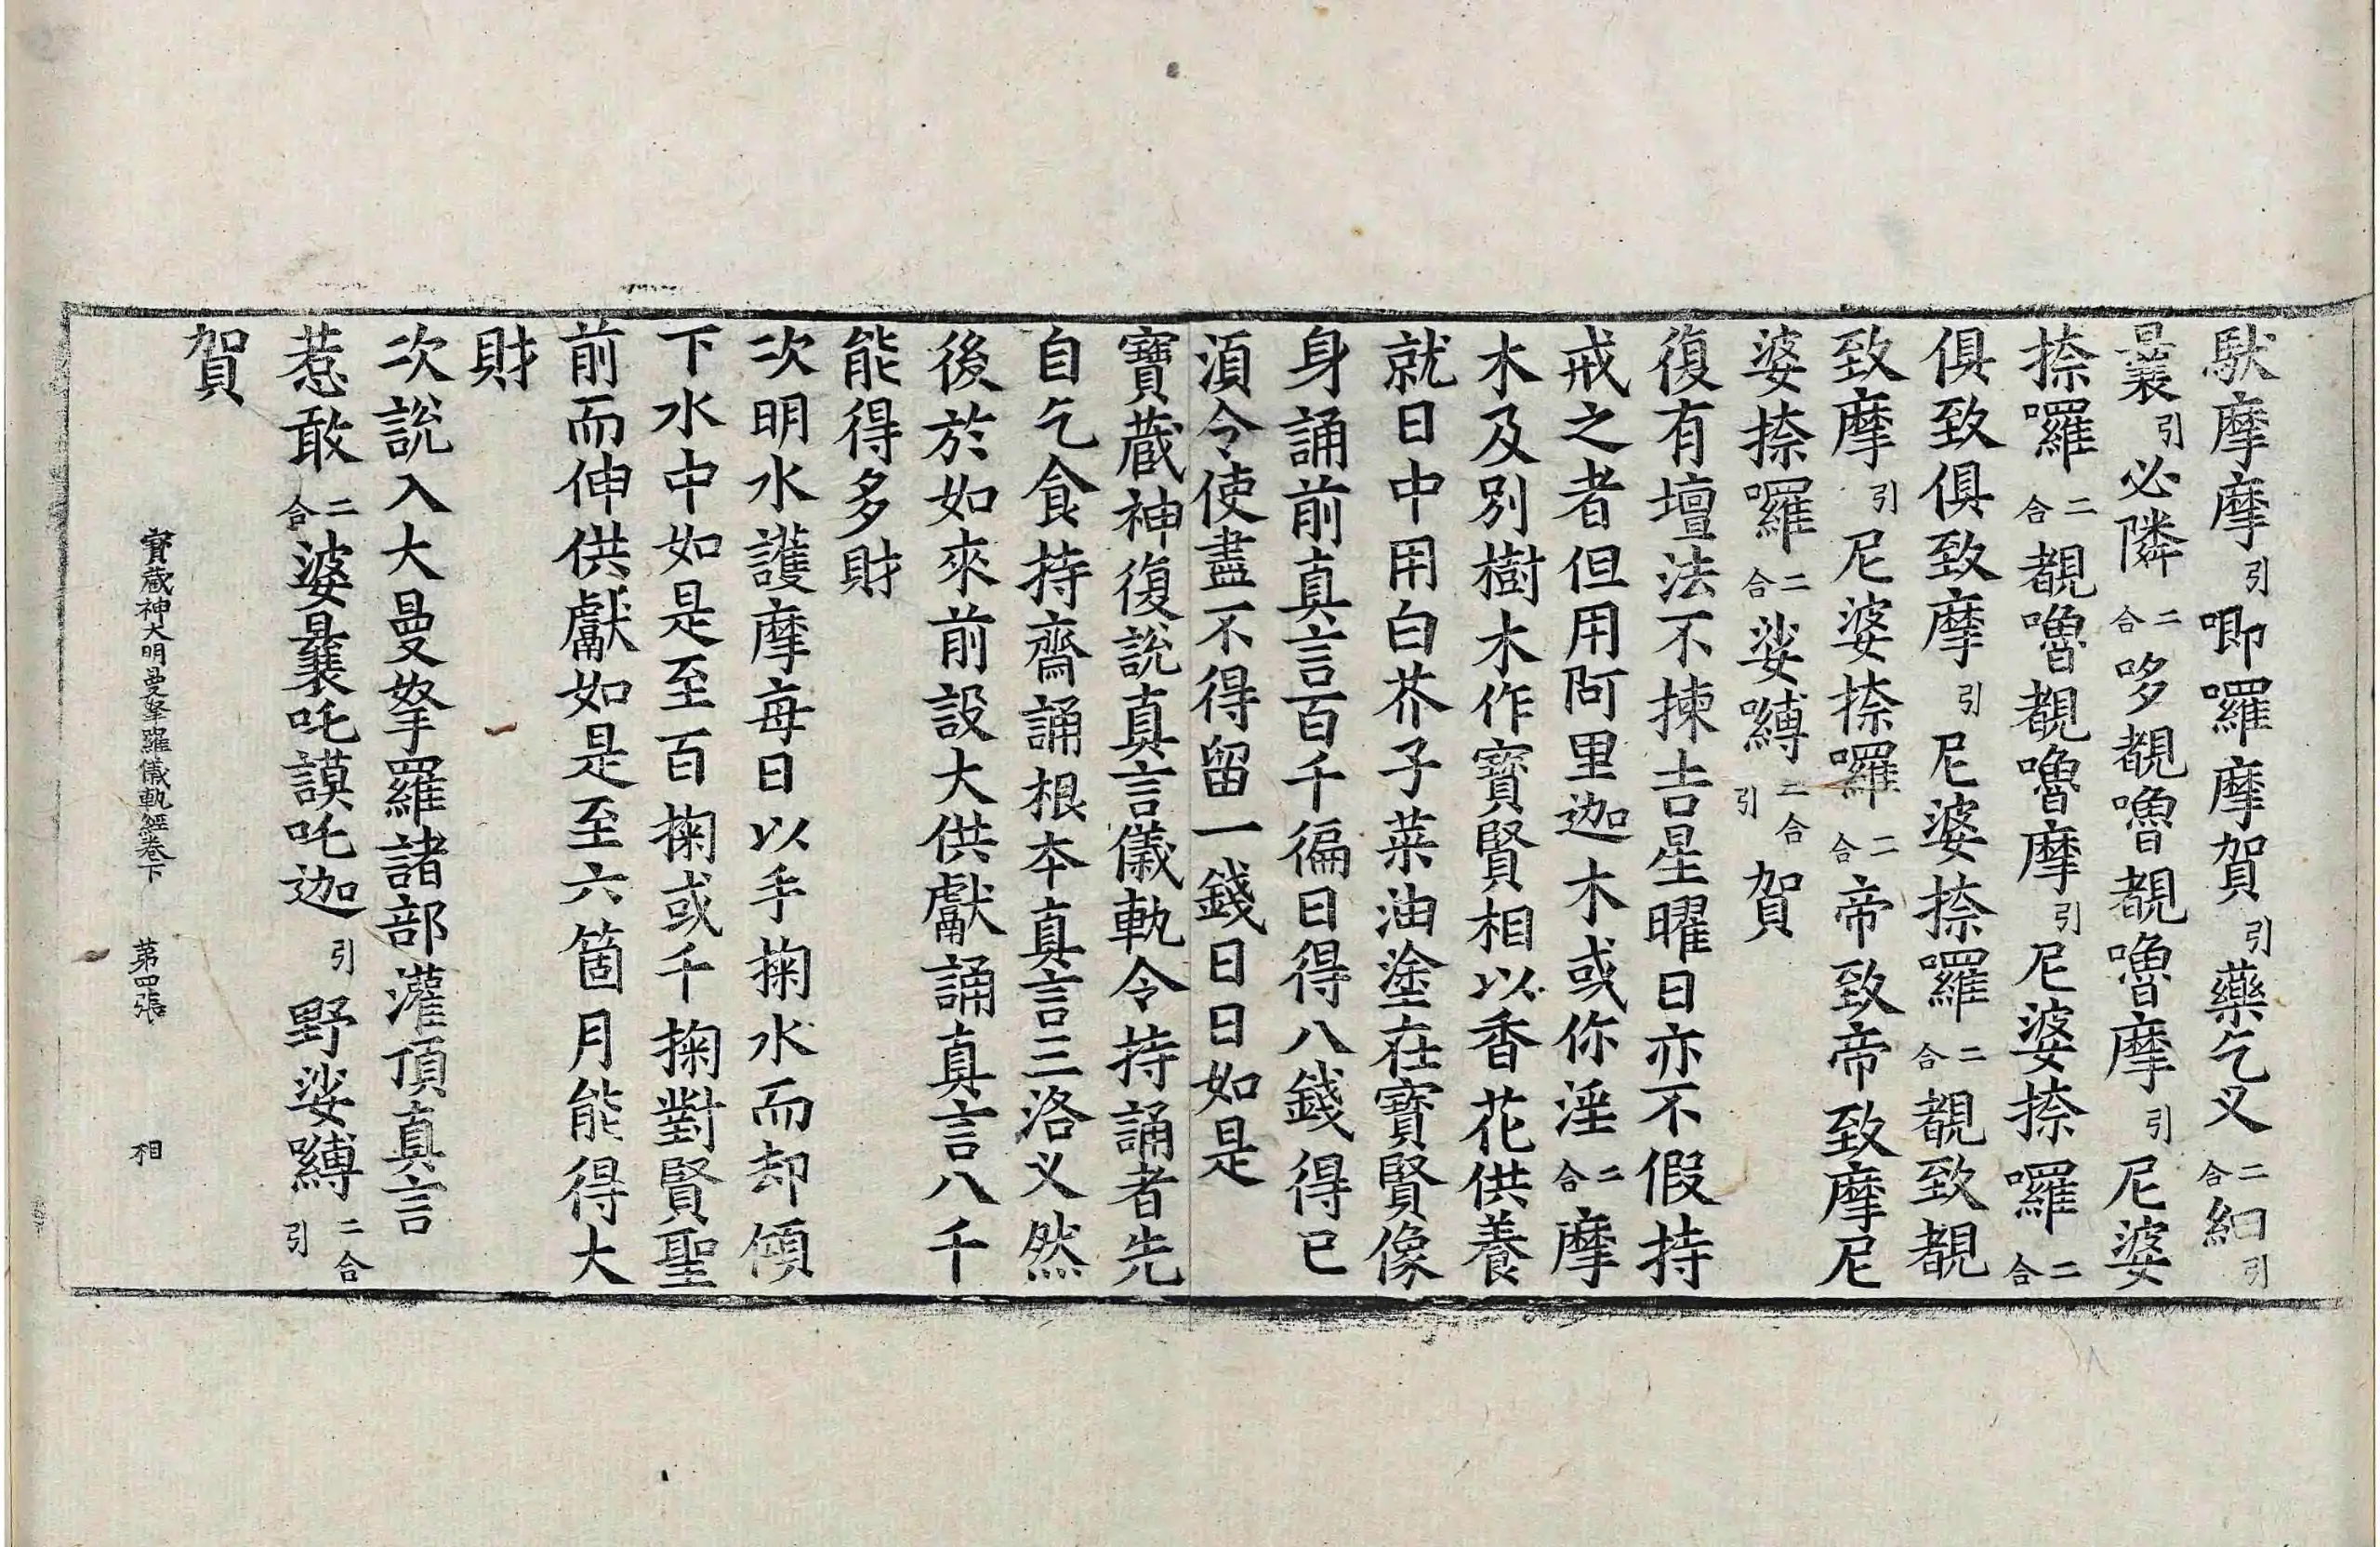 馱摩摩引唧囉摩賀引藥乞叉二合紉引
曩引必隣二合哆覩嚕覩嚕摩引尼婆
捺囉二合覩嚕覩嚕摩引尼婆捺囉二合
俱致俱致摩引尼婆捺囉二合覩致覩
致摩引尼婆捺囉二合帝致帝致摩尼
婆捺囉二合娑嚩二合引賀
復有壇法不揀吉星曜日亦不假持
戒之者但用阿里迦木或你淫二合摩
木及別樹木作寶賢相以香花供養
就日中用白芥子菜油塗在寶賢像
身誦前真言百千徧日得八錢得已
須令使盡不得留一錢日日如是
寶藏神復說真言儀軌令持誦者先
自乞食持齋誦根本真言三洛叉然
後於如來前設大供獻誦真言八千
能得多財
次明水護摩每日以手掬水而却傾
下水中如是至百掬或千掬對賢聖
前而伸供獻如是至六箇月能得大
財
次說入大曼拏羅諸部灌頂真言
惹敢二合婆曩吒謨吒迦引野娑嚩二合引
賀
寶藏神大明曼拏羅儀軌經卷下 第四張 相